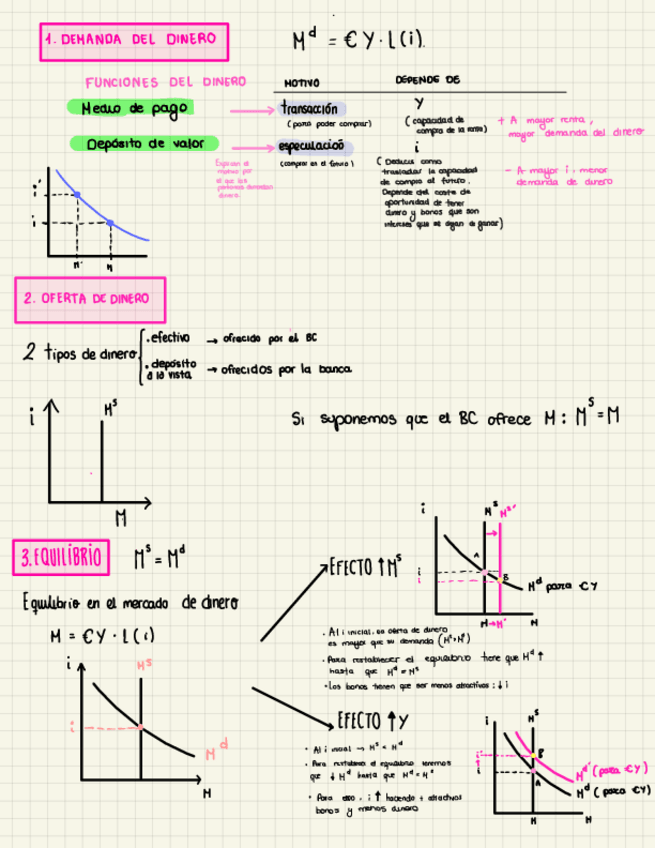 1. DEMANDA DEL DINERO
Mᵈ = €Y·L(i).
FUNCIONES DEL DINERO
MOTIVO
DEPENDE DE
Medio de pago
transacción
(para poder comprar)
Y
(capacidad de
compra de la renta)
+ A mayor renta,
mayor demanda del dinero
Depósito de valor
especulació
(comprar en el futuro)
i
(Deducir como
trasladar la capacidad
de compra al futuro.
Depende del coste de
oportunidad de tener
dinero y bonos que son
intereses que se dejan de ganar)
- A mayor i, menor
demanda de dinero
Explican el
motivo por
el que las
personas demandan
dinero.
i'
i
M'
M
2. OFERTA DE DINERO
2 tipos de dinero
· efectivo → ofrecido por el BC
· depósito
a la vista → ofrecidos por la banca
i
Mˢ
M
Si suponemos que el BC ofrece M: Mˢ = M
3. EQUILIBRIO
Mˢ = Mᵈ
Equilibrio en el mercado de dinero
M = €Y·L(i)
i
Mˢ
i
Mᵈ
M
EFECTO ↑Mˢ
i
Mˢ
Mˢ'
A
B
i
i
Mᵈ para €Y
M→M'
M
· Al i inicial, la oferta de dinero
es mayor que su demanda (Mˢ>Mᵈ)
· Para restablecer el equilibrio tiene que Mᵈ ↑
hasta que Mᵈ = Mˢ
· Los bonos tienen que ser menos atractivos: ↓i
EFECTO ↑Y
· Al i inicial → Mˢ < Mᵈ
· Para restablecer el equilibrio tenemos
que ↓Mᵈ hasta que Mᵈ = Mˢ
· Para eso, i ↑ haciendo + atractivos
bonos y menos dinero
i
Mˢ
i'
i
B
A
Mᵈ' (para €Y)
Mᵈ (para €Y)
M
M